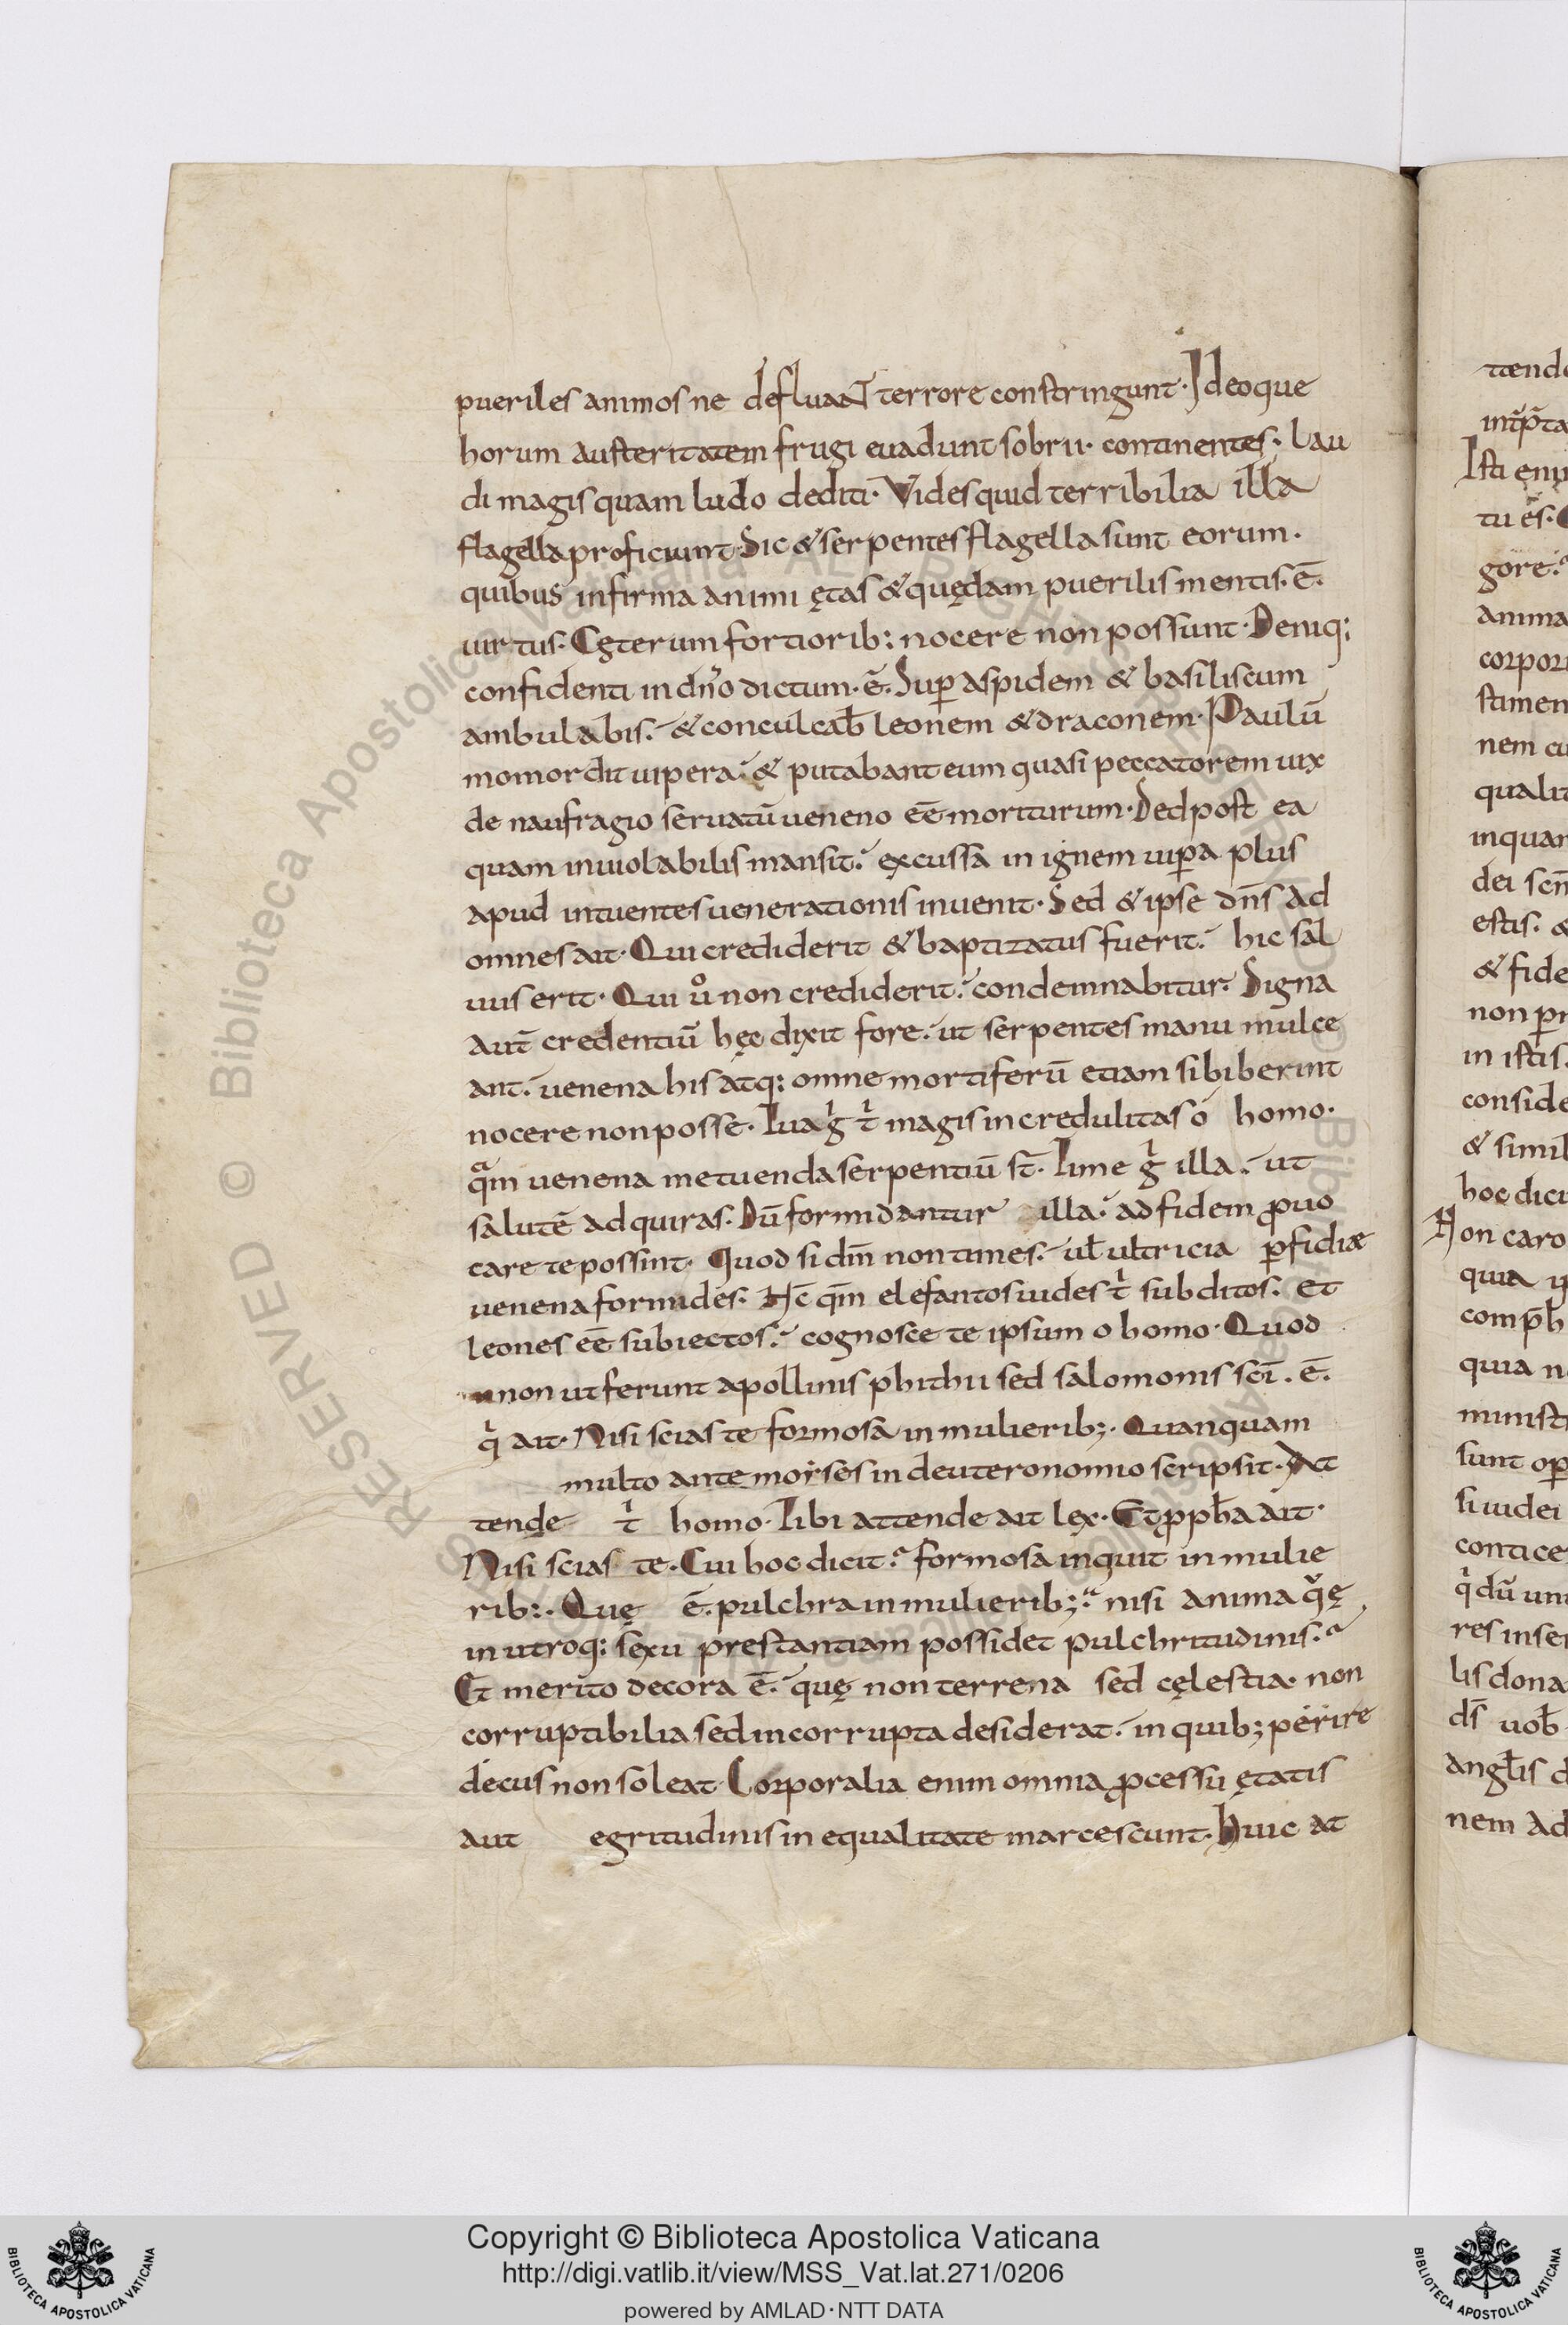 pueriles animos ne defluaNT terrore constringunt· Ideoque
horum austeritatem frugi euadunt sobrii· continentes· Lau
di magis quam ludo dediti· Vides quid terribilia illa
flagella proficiunt· Sic & serpentes flagella sunt eorum·
quibus infirma animi ętas & quędam puerilis mentis· ē·
uirtus· Cęterum fortiorib: nocere non possunt· Deniq:
confidenti in dño dictum· ē· Sup̱ aspidem & basiliscum
ambulabis· & conculcab̄ leonem & draconem· Paulū
momordit uipera· & putabant eum quasi peccatorem uix
de naufragio seruatū ueneno eē moriturum· Sed post ea
quam inuiolabilis mansit· excussa in ignem uip̱a plus
apud intuentes uenerationis inuenit· Sed & ipse dn̄s ad
omnes ait· Qui crediderit & baptizatus fuerit· hic sal
uus erit· Qui uͦ non crediderit· condemnabitur· Signa
aut̄ credentiū hęc dixit fore· ut serpentes manu mulce
ant· uenena his atq: omne mortiferū etiam si biberint
nocere non posse· Tua gͥ tͥ magis incredulitas ó homo·
qͣm uenena metuenda serpentiū st̄· Time gͥ illa· ut
salutē adquiras· Dū formidantur illa· ad fidem ꝓuo
care te possint· Quod si dm̄ non times· ul̄ ultricia p̱fidiæ
uenena formides· Hc̄ qm̄ elefantos uides tͥ subditos· Et
leones eē subiectos· cognosce te ipsum o homo· Quod
non ut ferunt apollinis phithii sed salomonis sci̅· ē·
qͥ ait· Nisi scias te formosa in mulierib;· Quanquam
multo ante moyses in deuteronomio scripsit· At
tende tͥ homo· Tibi attende ait lex· Et ꝓpħa ait·
Nisi scias te· Cui hoc dicit· formosa inquit in mulie
rib:· Quę ē· pulchra in mulierib;· nisi anima qͣę
in utroq: sexu prestantiam possidet pulchritudinis·
Et merito decora ē· quę non terrena sed cęlestia· non
corruptibilia sed incorrupta desiderat· in quib; perire
decus non soleat· Corporalia enim omnia ꝓcessu ętatis
aut egritudinis inequalitate marcescunt· Huic at
tend
Isti eni
tu es·
gore·
anima
corpor
stimen
nem cu
qualit
inquan
dei scn̄
estis· &
& fide
non
in istis·
conside
& simil
hoc dici
Non caro
quia
quia n
ministr
sunt op̱
si uidei
contice
qͥ dū un
res inse
lis dona
ds̄ uob̄
angl̄is d
nem ad
Copyright © Biblioteca Apostolica Vaticana
http://digi.vatlib.it/view/MSS_Vat.lat.271/0206
powered by AMLAD·NTT DATA
BIBLIOTECA APOSTOLICA VATICANA
BIBLIOTECA APOSTOLICA VATICANA